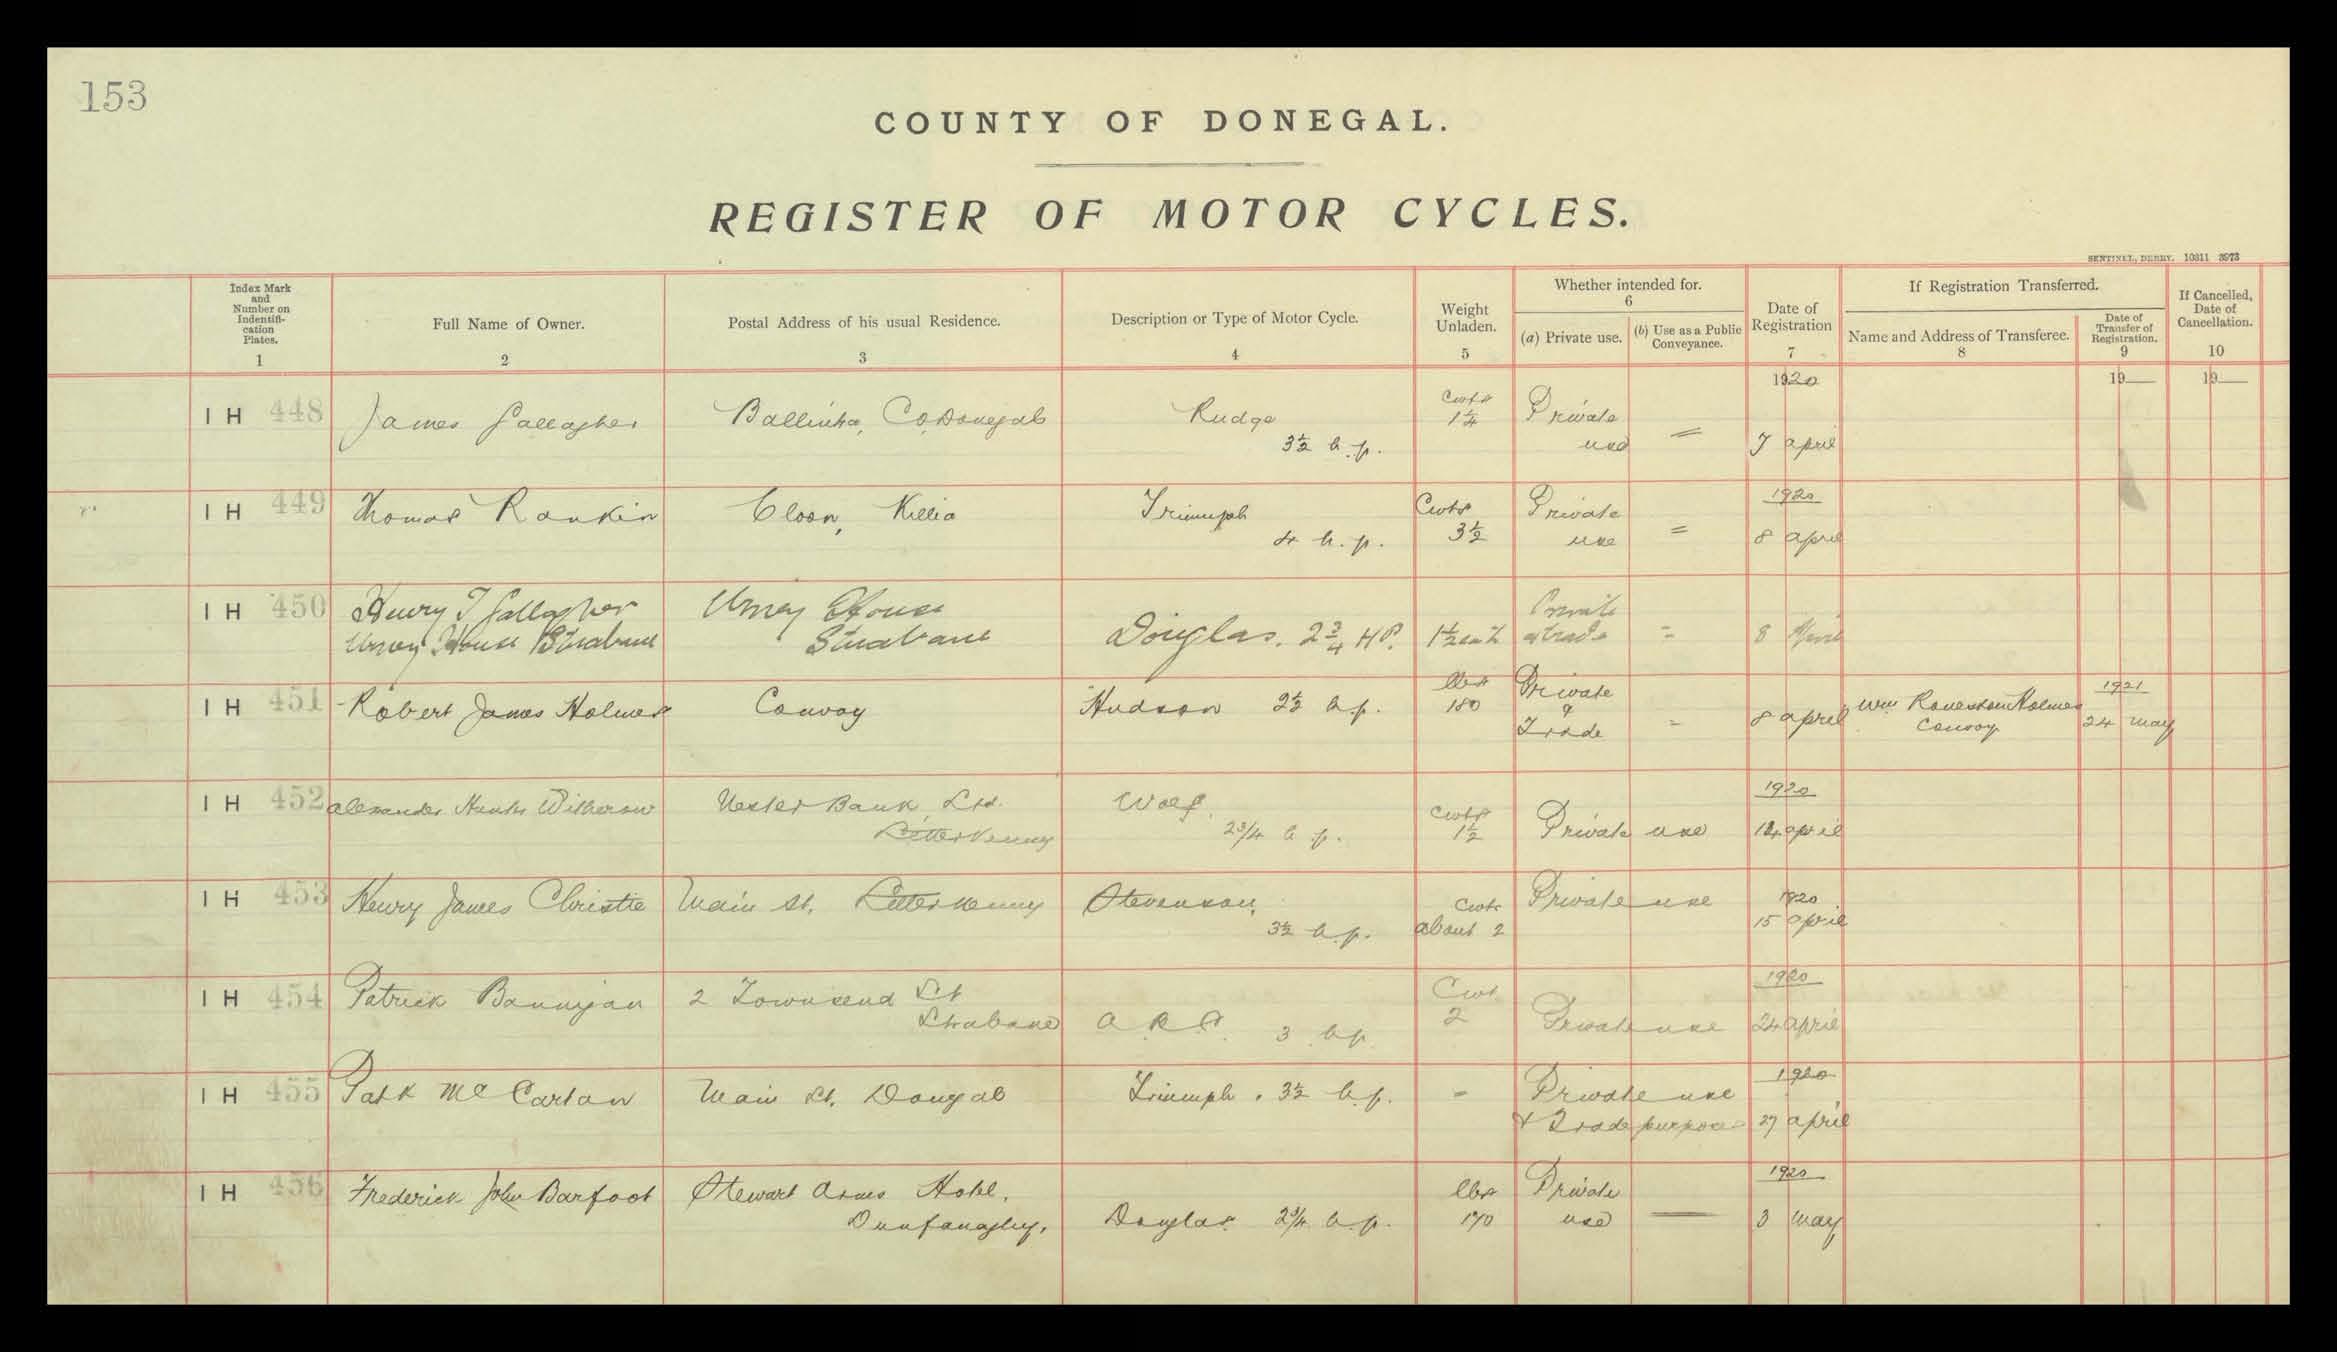 153
COUNTY OF DONEGAL.
REGISTER OF MOTOR CYCLES.
SENTINEL, DERRY. 10311 3973
Index Mark and Number on Indentifi-cation Plates. 1
Full Name of Owner. 2
Postal Address of his usual Residence. 3
Description or Type of Motor Cycle. 4
Weight Unladen. 5
Whether intended for. 6
(a) Private use.
(b) Use as a Public Conveyance.
Date of Registration 7
If Registration Transferred.
Name and Address of Transferee. 8
Date of Transfer of Registration. 9
If Cancelled, Date of Cancellation. 10
1920 19 19
IH 448 James Gallagher Co Donegal Rudge 3½ h.p. Cwts 1¼ Private use = 7 April
IH 449 Thomas Rankin Cloon, Triumph 4 h.p. Cwts 3½ Private use = 1920 8 april
IH 450 Henry T Gallagher Urney House Strabane Urney House Strabane Douglas. 2¾ HP. 1½ cwt Private & trade = 8 April
IH 451 Robert James Holmes Convoy Hudson 2½ h.p. lbs 180 Private & Trade = 8 april Wm Holmes Convoy 1921 24 May
IH 452 Alexander Witherow Ulster Bank Ltd. Letterkenny Wolf 2¾ h.p. Cwts 1½ Private use 1920 april
IH 453 Henry James Christie Main St. Letterkenny Stevenson, 3½ h.p. Cwts about 2 Private use 1920 15 april
IH 454 Patrick Bannigan 2 Townsend St Strabane 3 h.p. Cwt 2 Private use 1920 24 april
IH 455 Patk McCartan Main St. Donegal Triumph. 3½ h.p. - Private use & Trade purposes 1920 27 april
IH 456 Frederick John Barfoot Stewart Arms Hotel, Dunfanaghy. Douglas 2¾ h.p. lbs 170 Private use — 1920 3 May